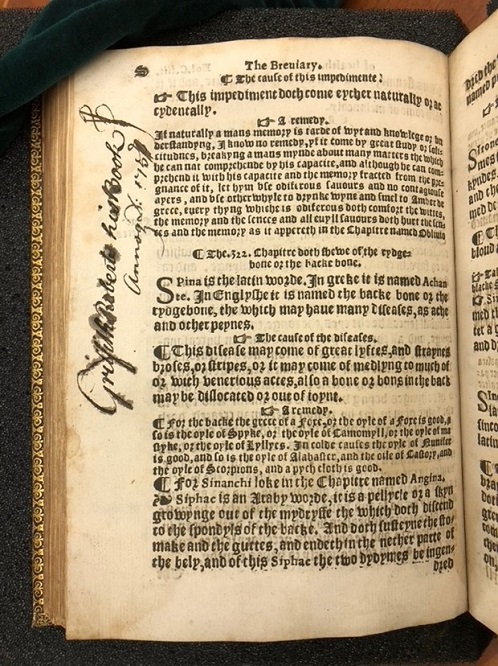 S The Breuiary.
¶ The cause of this impedimente?
☞ This impediment doth come eyther naturally or ac
cydentally.
☞ A remedy.
If naturally a mans memory is tarde of wyt and knowlege or vn
derstandyng, I know no remedy, yf it come by great study or soli-
citudnes, breakyng a mans mynde about many matters the which
he can not comprehende by his capacite, and although he can com-
prehend it with his capacite and the memory fracted from the pre-
gnance of it, let hym vse odiferous sauours and no contagiouse
ayers, and vse other whyle to drynke wyne and smel to Amber de
grece, euery thyng whiche is odiferous doth comfort the wittes,
the memory and the sences and all euyll sauours doth hurt the sen-
ces and the memory as it appereth in the Chapitre named Obliuio
¶ The .322. Chapitre doth shewe of the rydge-
bone or the backe bone.
Spina is the latin worde. In greke it is named Achan
tee. In Englyshe it is named the backe bone or the
rydgebone, the which may haue many diseases, as ache
and other peynes.
☞ The cause of the diseases.
¶ This disease may come of great lyftes, and straynes
broses, or stripes, or it may come of medlyng to much of
or with venerious actes, also a bone or bons in the back
may be dislocated or out of ioyne.
☞ A remedy.
¶ For the backe the grece of a Foxe, or the oyle of a Foxe is good,
so is the oyle of Spyke, or the oyle of Camomyll, or the oyle of
or the oyle of Lyllyes. In colde causes the oyle of
is good, and so is the oyle of Alabaster, and the oile of Castory, and
the oyle of Scorpions, and a pych cloth is good.
¶ For Sinanchi loke in the Chapitre named Angina.
Siphac is an Araby worde, it is a pellycle or a skyn
growynge out of the mydryffe the which doth discend
to the spondyls of the backe. And doth susteyne the sto-
make and the guttes, and endeth in the nether parte of
the bely, and of this Siphac the two dydymes be ingen-
dred
Griffith Roberts his Book
Annoq D.